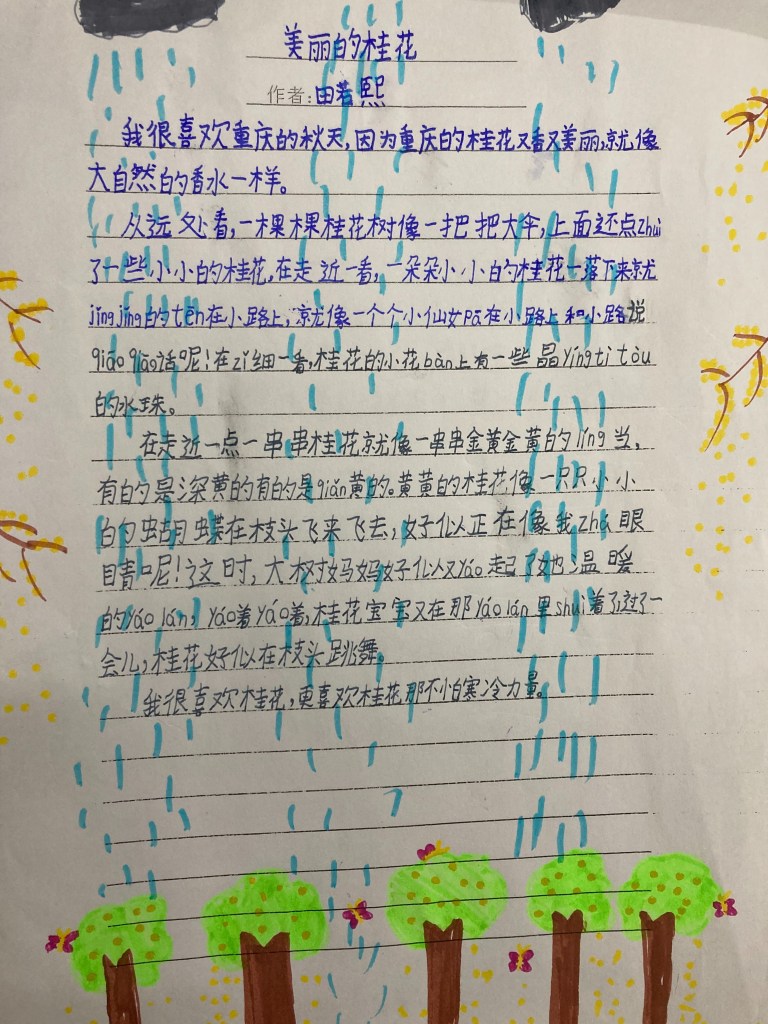 美丽的桂花
作者:田若熙
我很喜欢重庆的秋天,因为重庆的桂花又香又美丽,就像
大自然的香水一样。
从远处看,一棵棵桂花树像一把把大伞,上面还点zhuì
了一些小小的桂花,在走近一看,一朵朵小小的桂花一落下来就
jīngjīng的tēn在小路上,就像一个个小仙女pā在小路上和小路说
qiāo qiāo话呢!在zǐ细一看,桂花的小花bàn上有一些晶yíng tì tòu
的水珠。
在走近一点一串串桂花就像一串串金黄金黄的líng当,
有的是深黄的有的是qiǎn黄的。黄黄的桂花像一只只小小
的蝴蝶在枝头飞来飞去,好似正在像我zhǎ眼
睛呢!这时,大树妈妈好似又yáo起了她温暖
的yáo lán,yáo着yáo着,桂花宝宝又在那yáo lán里shuì着了,过了一
会儿,桂花好似在枝头跳舞。
我很喜欢桂花,更喜欢桂花那不怕寒冷力量。